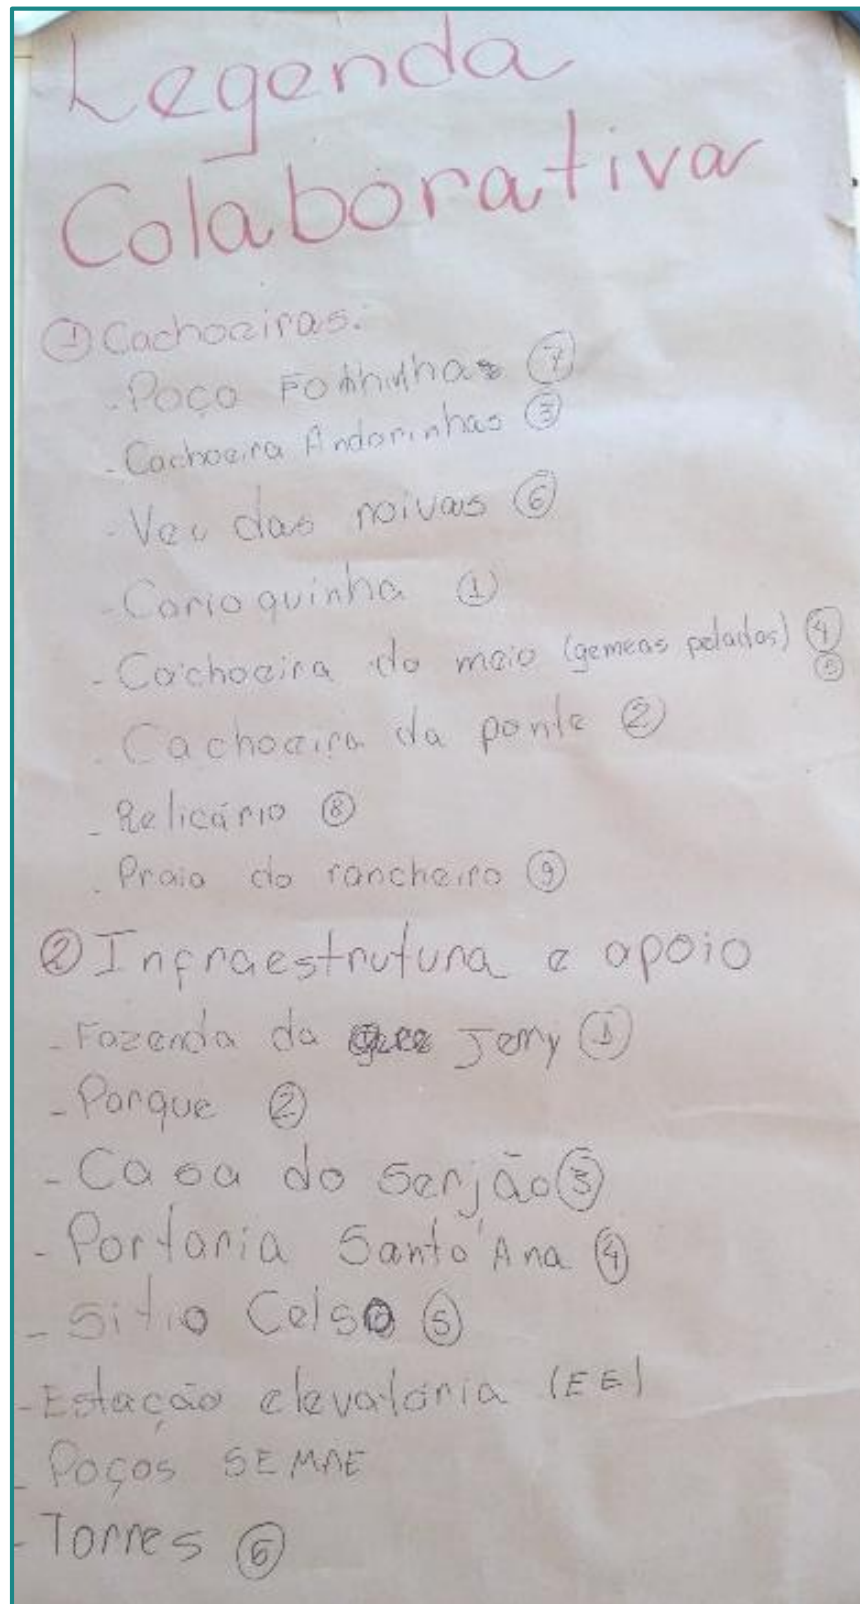 Legenda
Colaborativa
① Cachoeiras:
- Poço ⑦
- Cachoeira Andorinhas ③
- Veu das noivas ⑥
- Carioquinha ①
- Cachoeira do meio (gemeas peladas) ④
⑤
- Cachoeira da ponte ②
- Relicário ⑧
- Praia do rancheiro ⑨
② Infraestrutura e apoio
- Fazenda da Jerry ①
- Parque ②
- Casa do Serjão ③
- Portaria Santo'Ana ④
- Sitio Celso ⑤
- Estação elevatória (EE)
- Poços SEMAE
- Torres ⑥